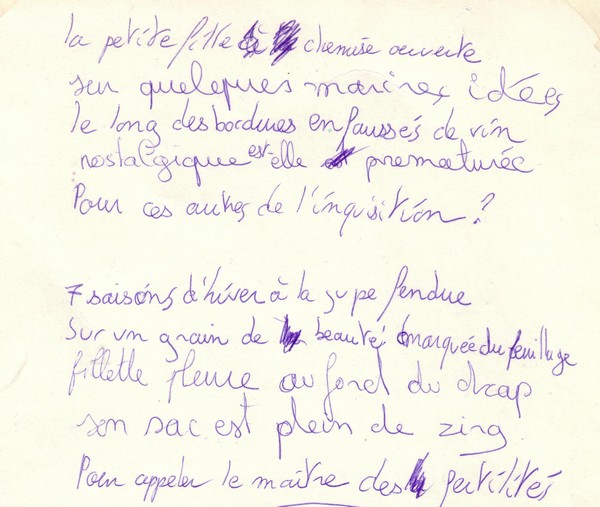 la petite fille à chemise ouverte
sur quelques marines idées
le long des bordures en faussés de vin
nostalgique est-elle prematurée
Pour ces autres de l'inquisition ?
7 saisons d'hiver à la jupe fendue
Sur un grain de beauté marquée du feuillage
fillette pleure au fond du drap
son sac est plein de zing
Pour appeler le maître des